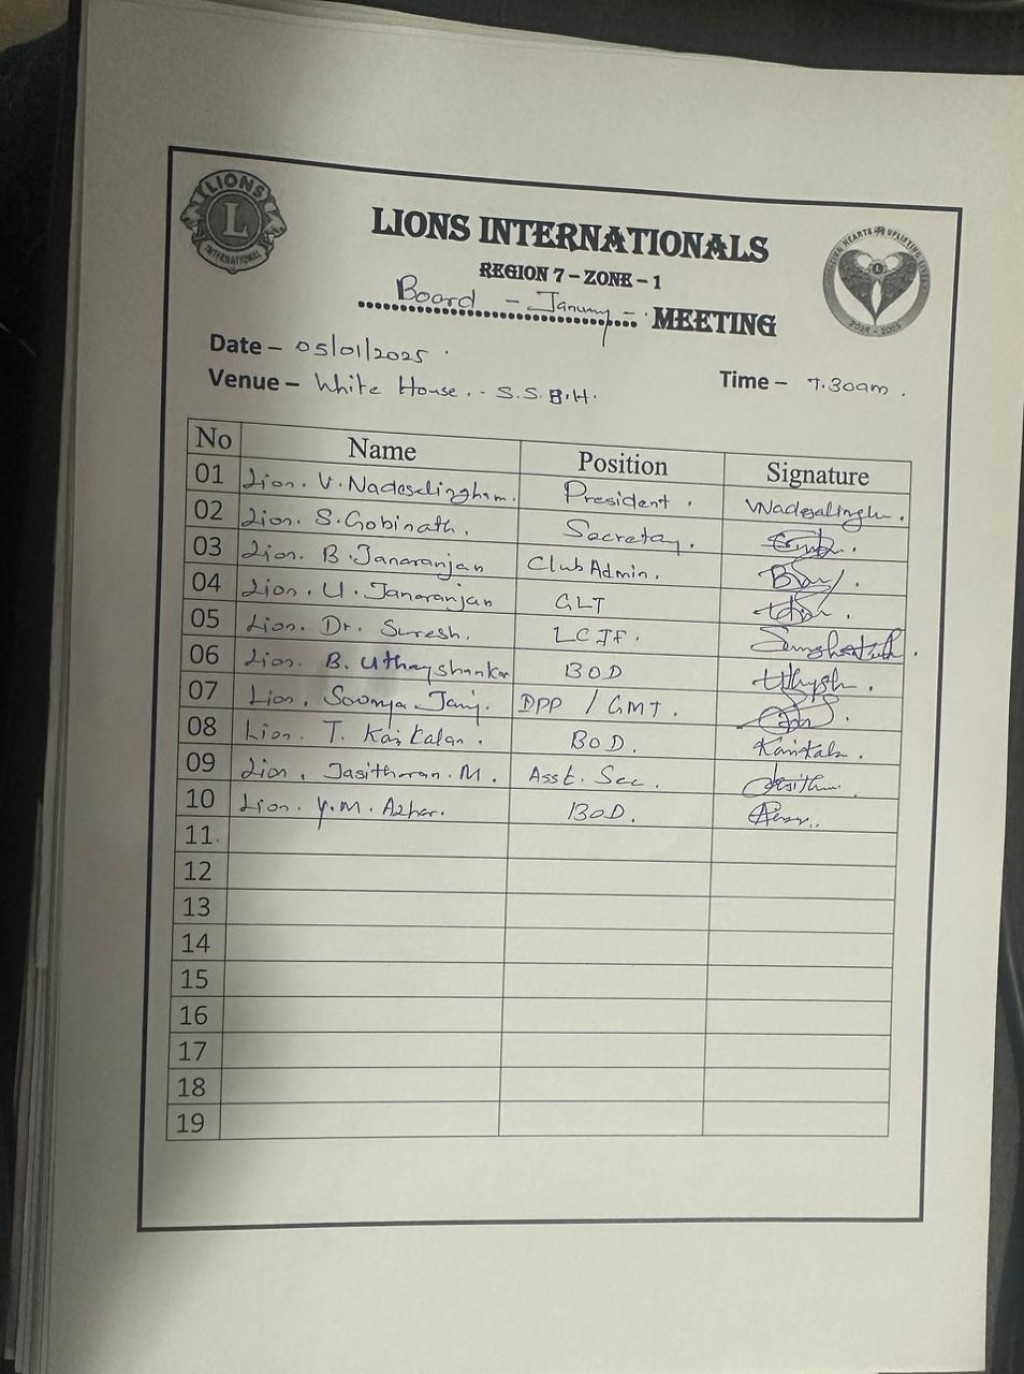 LIONS
L
INTERNATIONAL
LIONS INTERNATIONALS
HEARTS UPLIFTING
2024 - 2025
REGION 7 – ZONE – 1
Board - January - MEETING
Date – 05/01/2025
Venue – White House. - S.S.B.H.
Time – 7.30am.
No Name Position Signature
01 Lion. V. Nadeselingham. President. Wadesalingh.
02 Lion. S. Gobinath. Secretay.
03 Lion. B. Janaranjan Club Admin.
04 Lion. U. Janaranjan GLT
05 Lion. Dr. Suresh. LCIF.
06 Lion. B. Uthayshankar BOD
07 Lion. DPP / GMT.
08 Lion. T. BOD.
09 Lion. Jasitharan. M. Asst. Sec.
10 Lion. Y.M. Azhar. BOD.
11
12
13
14
15
16
17
18
19